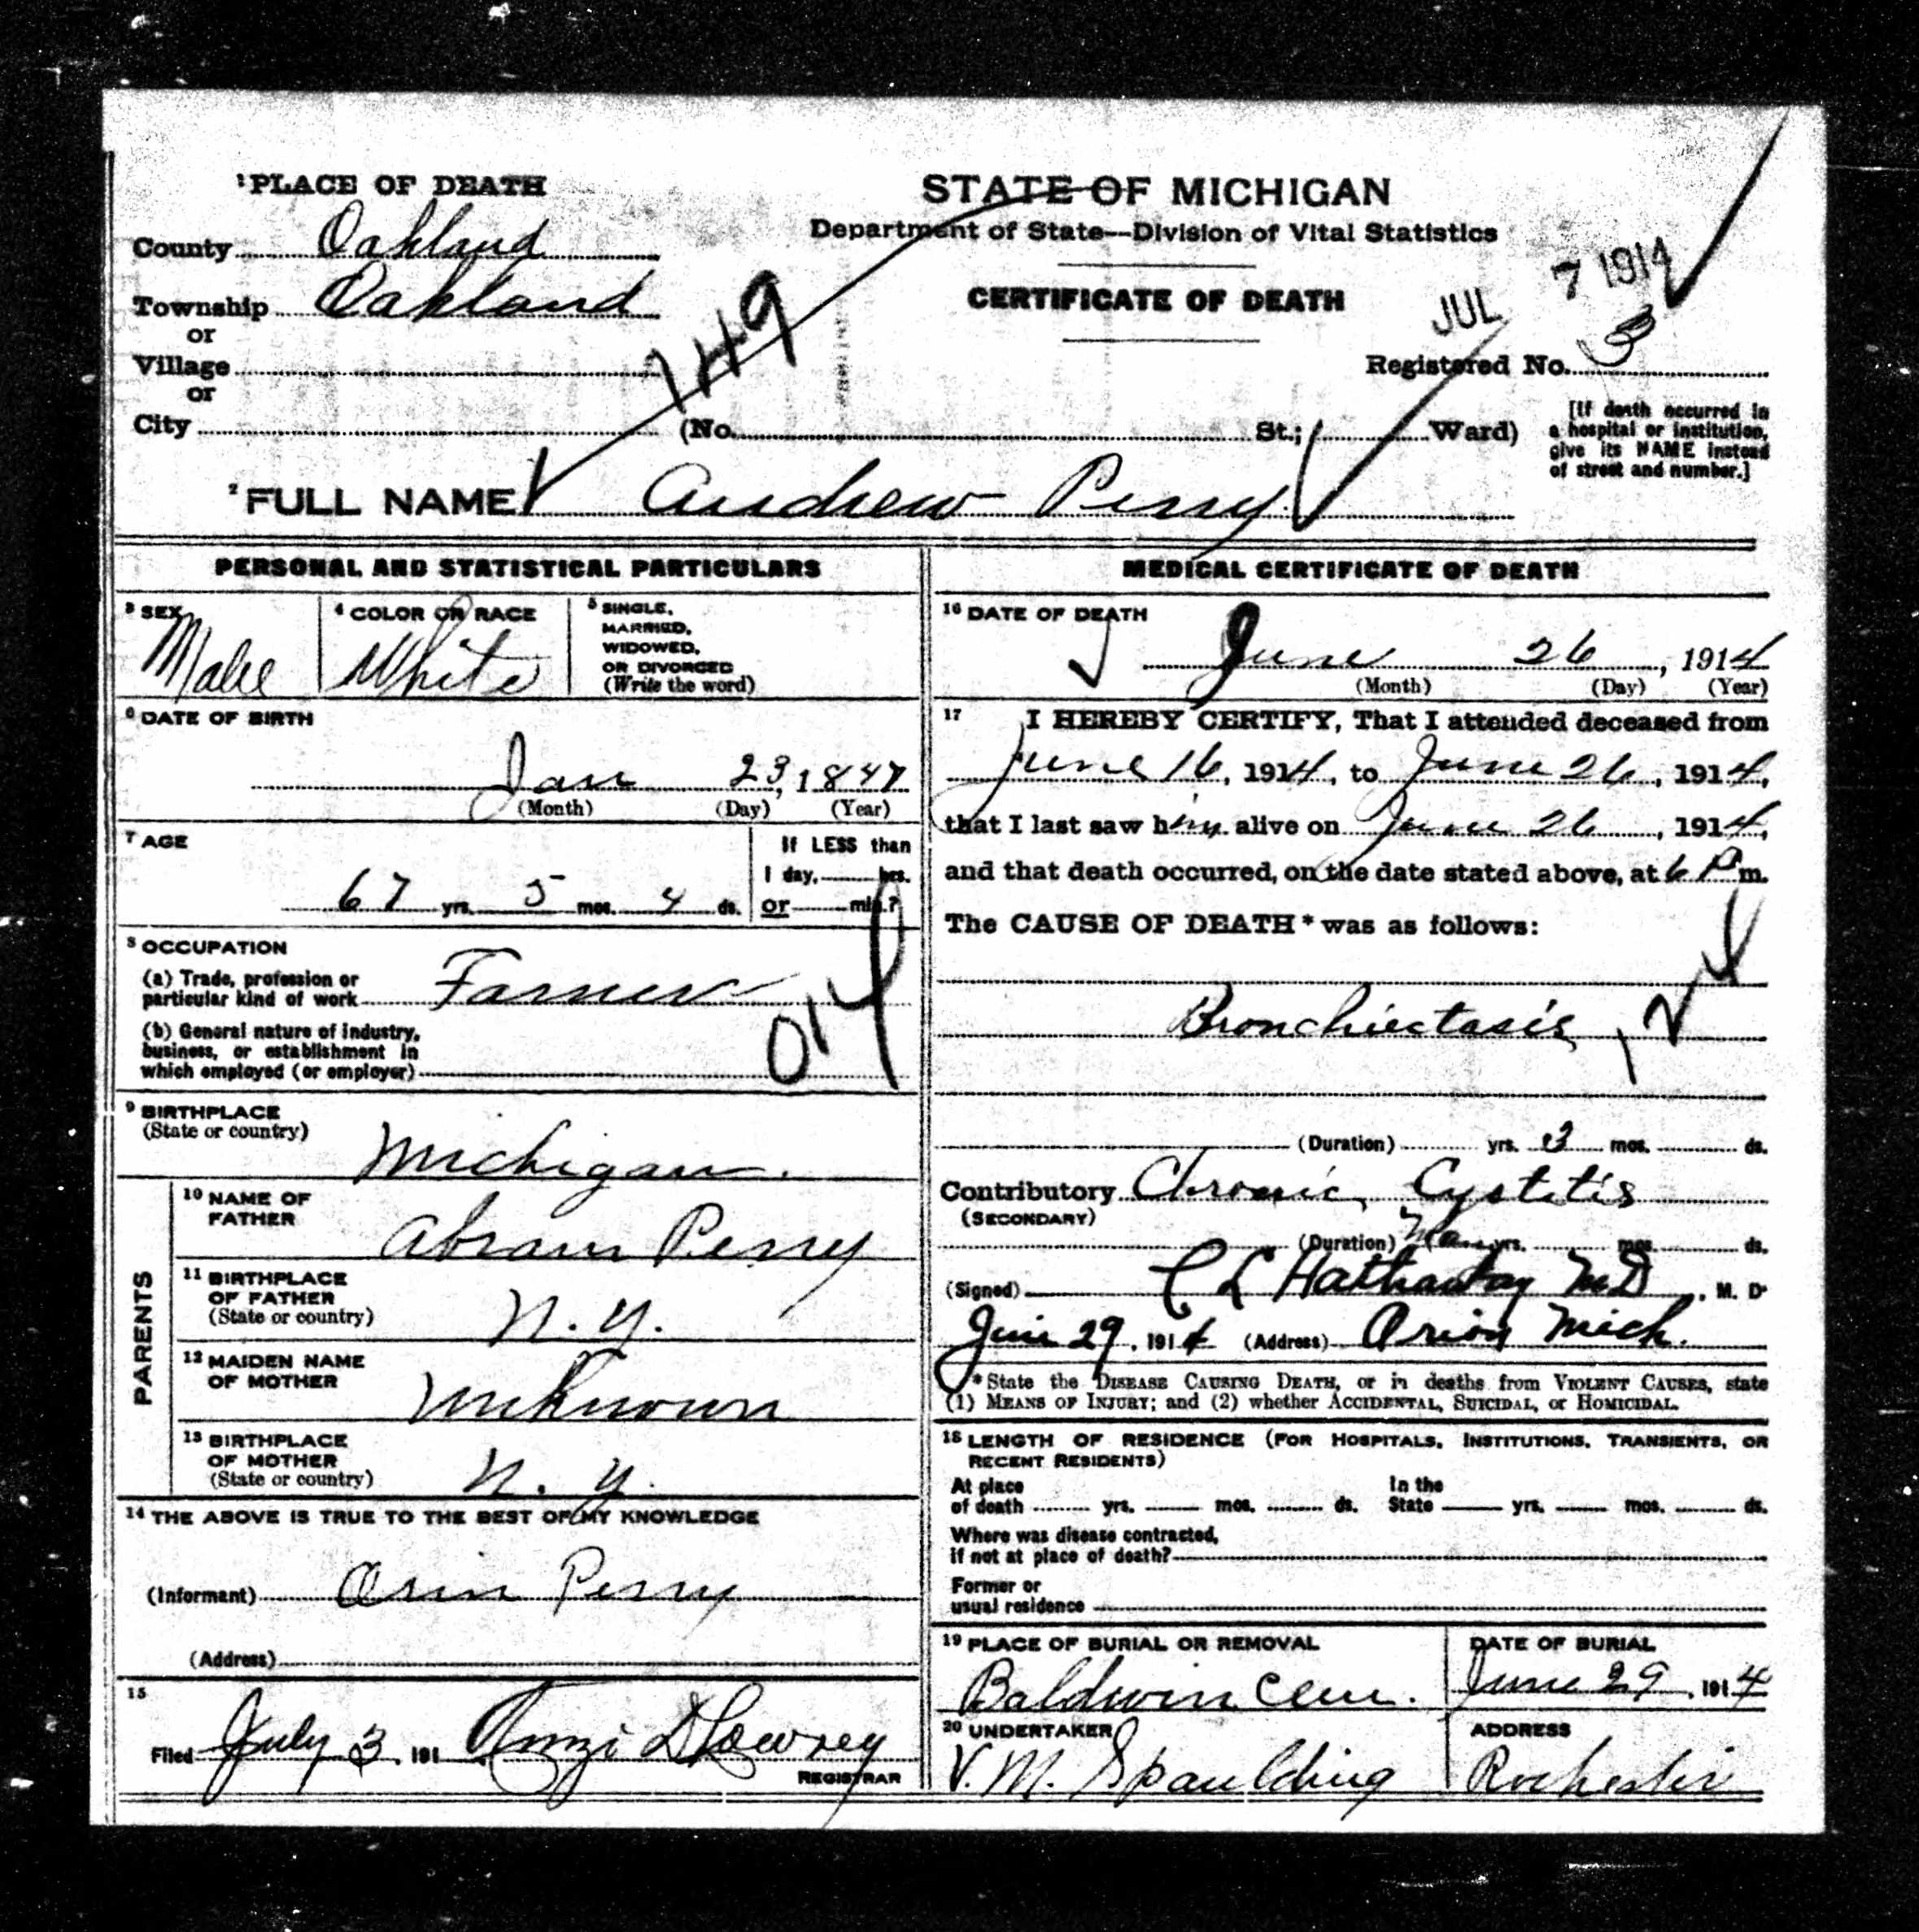 1 PLACE OF DEATH
County Oakland
Township Oakland
or
Village
or
City
STATE OF MICHIGAN
Department of State—Division of Vital Statistics
CERTIFICATE OF DEATH
JUL 7 1914
149
Registered No. 3
(No. St.; Ward)
[If death occurred in
a hospital or institution,
give its NAME instead
of street and number.]
2 FULL NAME Andrew Perry
PERSONAL AND STATISTICAL PARTICULARS
3 SEX
Male
4 COLOR OR RACE
White
5 SINGLE,
MARRIED,
WIDOWED,
OR DIVORCED
(Write the word)
6 DATE OF BIRTH
Jan 23, 1847
(Month) (Day) (Year)
7 AGE
67 yrs. 5 mos. 4 ds.
If LESS than
1 day, hrs.
or min.?
8 OCCUPATION
(a) Trade, profession or
particular kind of work Farmer
(b) General nature of industry,
business, or establishment in
which employed (or employer)
014
9 BIRTHPLACE
(State or country)
Michigan.
PARENTS
10 NAME OF
FATHER
Abram Perry
11 BIRTHPLACE
OF FATHER
(State or country)
N. Y.
12 MAIDEN NAME
OF MOTHER
Unknown
13 BIRTHPLACE
OF MOTHER
(State or country)
N. Y.
14 THE ABOVE IS TRUE TO THE BEST OF MY KNOWLEDGE
(Informant) Orin Perry
(Address)
15
Filed July 3, 191 Amzi D Lowrey
REGISTRAR
MEDICAL CERTIFICATE OF DEATH
16 DATE OF DEATH
June 26, 1914
(Month) (Day) (Year)
17 I HEREBY CERTIFY, That I attended deceased from
June 16, 1914, to June 26, 1914,
that I last saw him alive on June 26, 1914,
and that death occurred, on the date stated above, at 6 P m.
The CAUSE OF DEATH* was as follows:
Bronchiectasis
124
(Duration) yrs. 3 mos. ds.
Contributory Chronic Cystitis
(SECONDARY)
(Duration) Many yrs. mos. ds.
(Signed) C L Hathaway MD, M. D.
June 29, 1914 (Address) Orion Mich.
*State the DISEASE CAUSING DEATH, or in deaths from VIOLENT CAUSES, state
(1) MEANS OF INJURY; and (2) whether ACCIDENTAL, SUICIDAL, or HOMICIDAL.
18 LENGTH OF RESIDENCE (FOR HOSPITALS, INSTITUTIONS, TRANSIENTS, OR
RECENT RESIDENTS)
At place
of death yrs. mos. ds.
In the
State yrs. mos. ds.
Where was disease contracted,
if not at place of death?
Former or
usual residence
19 PLACE OF BURIAL OR REMOVAL
Baldwin Cem.
DATE OF BURIAL
June 29, 1914
20 UNDERTAKER
V. M. Spaulding
ADDRESS
Rochester